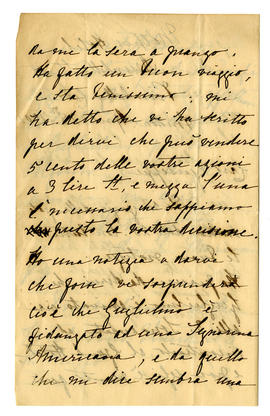 da me la sera a pranzo.
Ha fatto un buon viaggio,
e sta benissimo. mi
ha detto che vi ha scritto
per dirvi che può vendere
5 cento delle vostre azioni
a 3 lire St, e mezza l'una
È necessario che sappiamo
presto la vostra decisione.
Ho una notizia a darvi
che forse vi sorprenderà
cioè che Guglielmo è
fidanzato ad una Signorina
Americana, e da quello
che mi dice sembra una